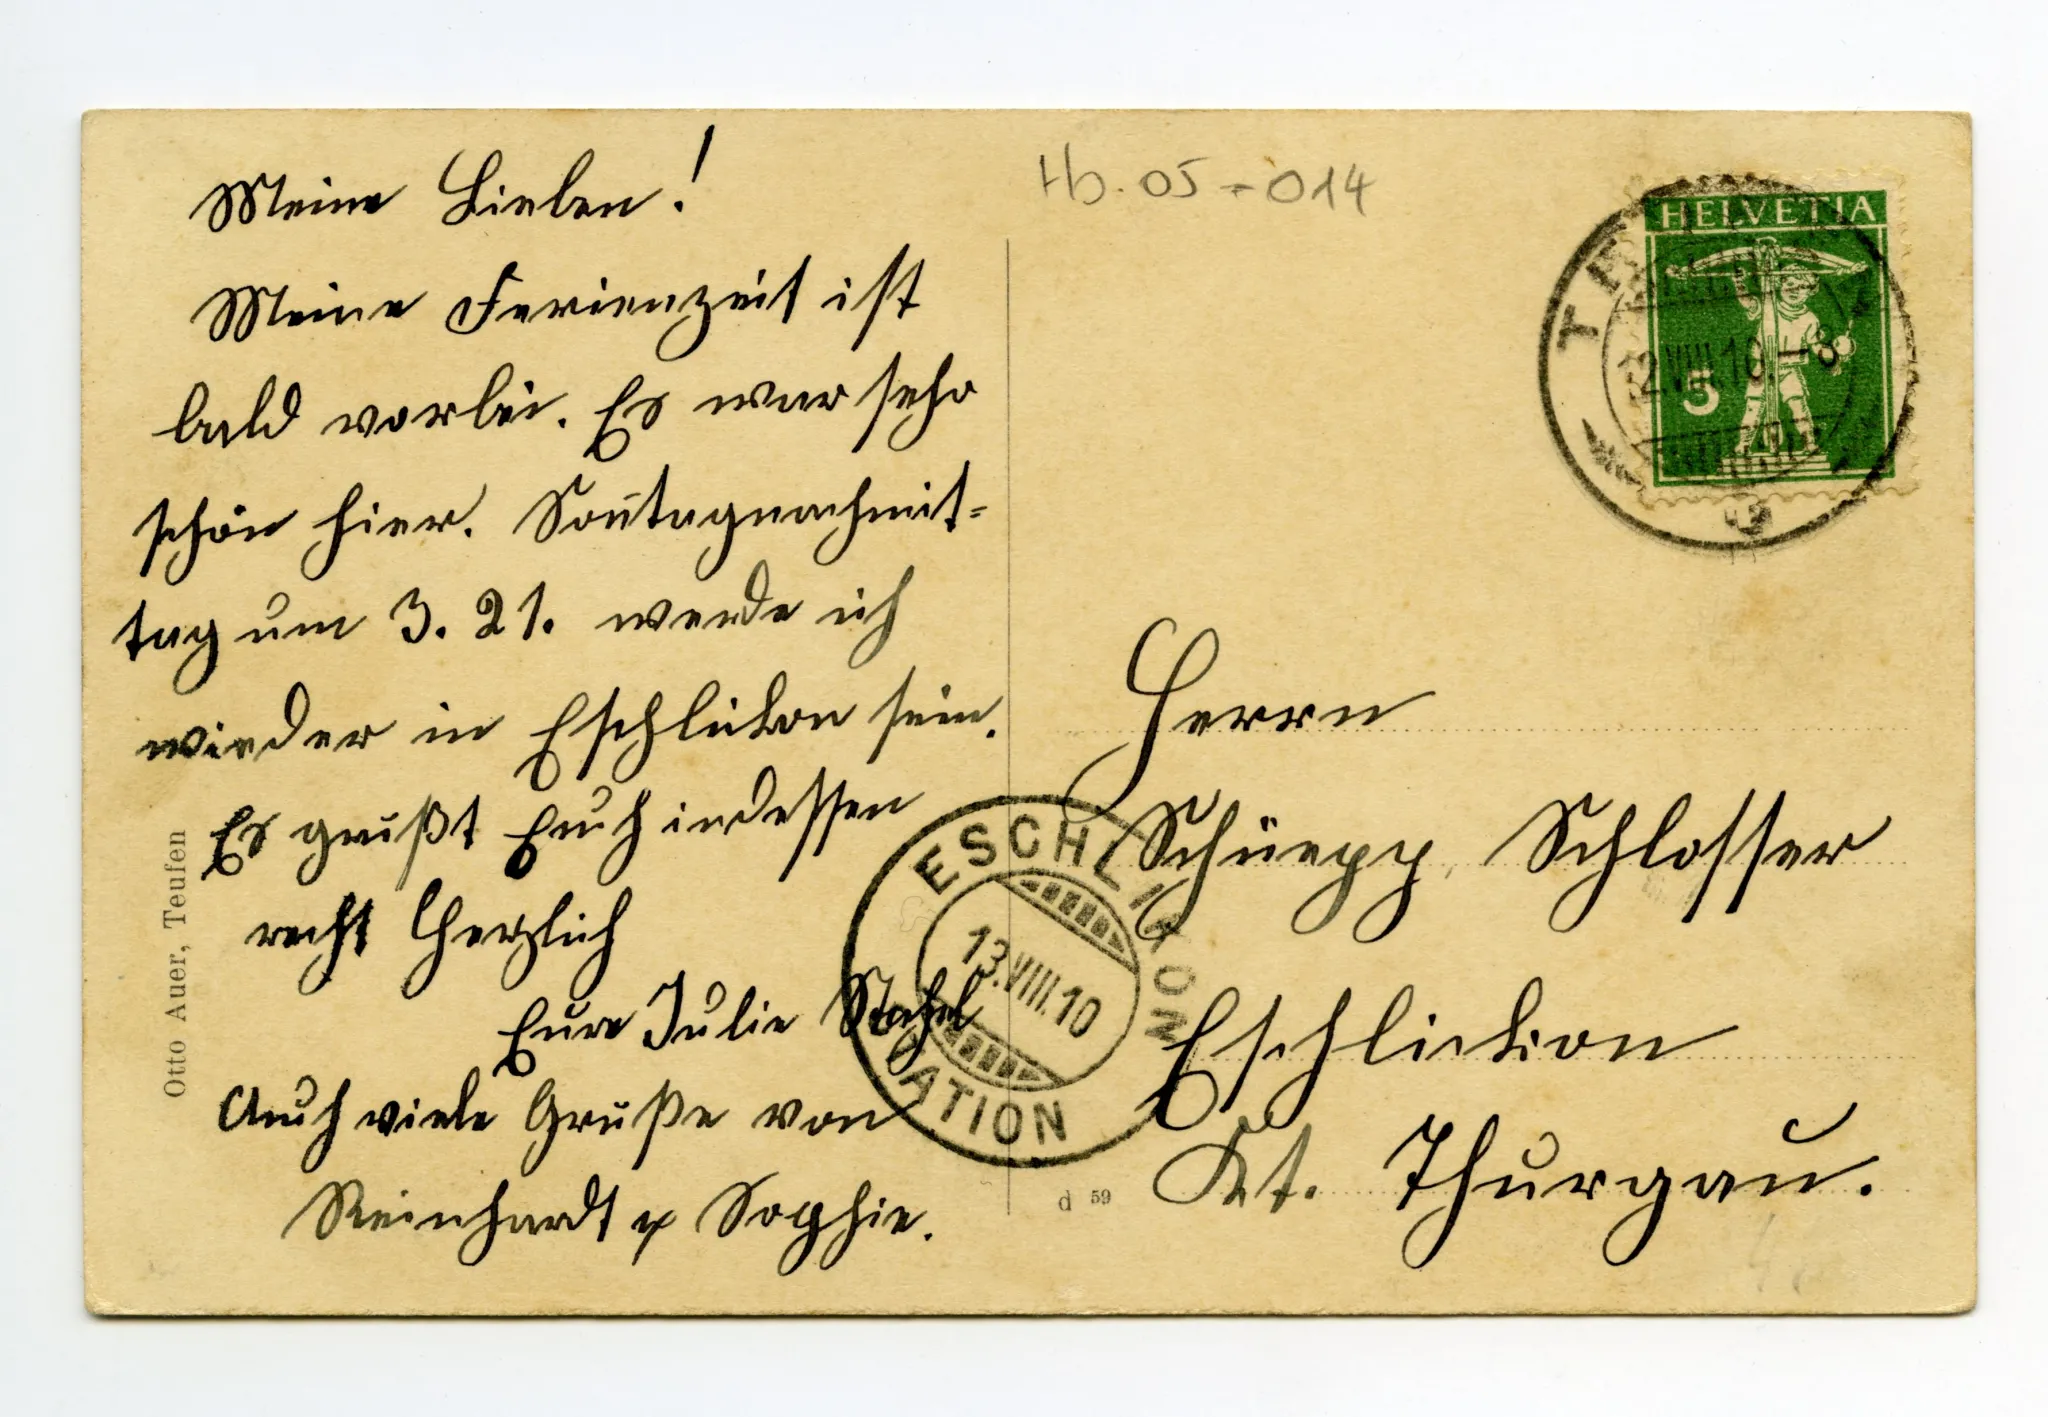 Meine Lieben!
Meine Ferienzeit ist
bald vorbei. Es war sehr
schön hier. Soñtagnachmit-
tag um 3.21. werde ich
wieder in Eschlikon sein.
Es grüßt Euch indessen
recht herzlich
Eure Julie Stahel
Auch viele Grüße von
Reinhardt u Sophie.
Otto Auer, Teufen
Hb. 05-014
HELVETIA
5
12.VIII.10.-8
Herrn
Schüepp, Schlosser
Eschlikon
Kt. Thurgau.
ESCHLIKON
13.VIII.10
STATION
d 59